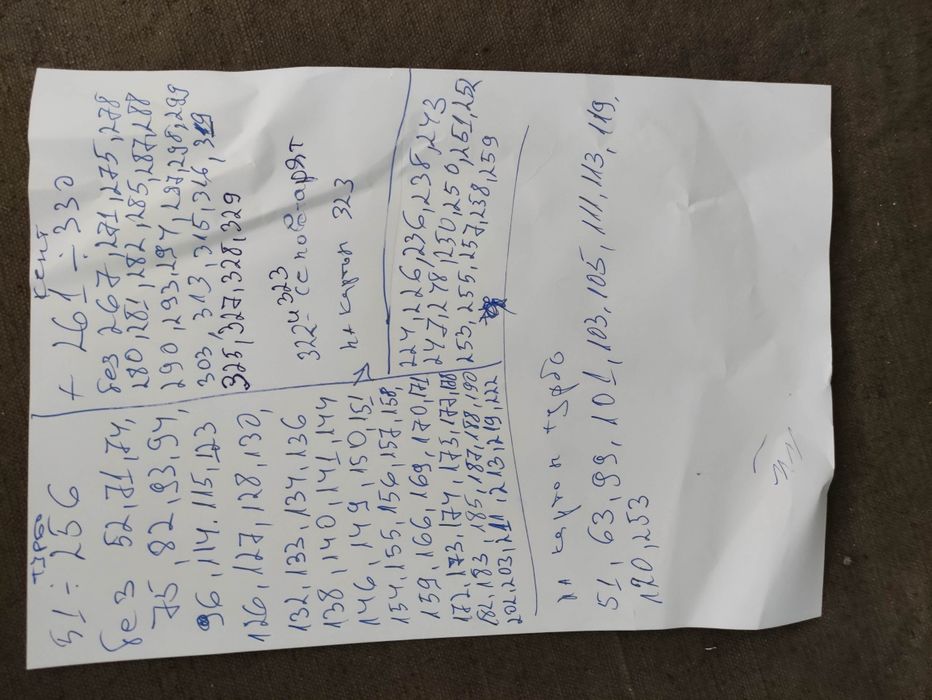 турбо
51÷256
без 52,71,74,
75,82,93,94,
96,114.115,123
126,127,128,130,
132,133,134,136
138,140,141,144
146,149,150,151
154,155,156,157,158,
159,166,169,170,171
172,173,174,173,177,188
182,183,185,187,188,190
202,203,211,213,219,222
224,226,236,238,243
247,248,250,250,251,252
253,255,257,258,259
кент
+ 261÷330
без 267,271,275,278
280,281,282,285,287,288
290,293,294,297,298,299
303,313,315,316,319
325,327,328,329
322 и 323
на картон 323
на картон турбо
51,63,99,101,103,105,111,113,119,
120,253